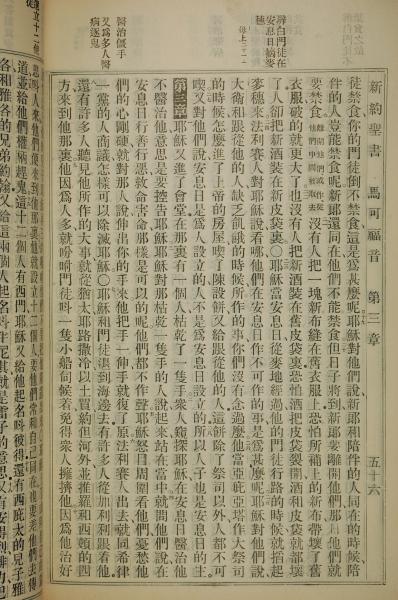 新約聖書 馬可福音 第三章 五十六
辯白門徒在
安息日摘麥
穗
母上二十一
醫治僵手
又爲多人醫
病逐鬼
徒禁食你的門徒倒不禁食這是爲甚麼呢耶穌對他們說新郎和陪伴的人同在的時候陪
伴的人豈能禁食呢新郎還同在他們不能禁食但日子將到新郎要離開他們那日他們就
要禁食沒有人把一塊新布縫在舊衣服上恐怕所補上的新布帶壞了舊
衣服破的就更大了也沒有人把新酒裝在舊皮袋裏恐怕酒把皮袋裂開酒漏出來皮袋就都壞
了人卻把新酒裝在新皮袋裏○耶穌當安息日從麥地經過他的門徒行路的時候就掐起
麥穗來法利賽人對耶穌說看哪他們在安息日作不可作的事是爲甚麼呢耶穌對他們說
大衛和跟從他的人缺乏飢餓的時候所作的事你們沒有念過麼他當亞庇亞塔作大祭司
的時候怎麼進了上帝的房屋喫了陳設餅又給跟從他的人喫這餅除了祭司以外人都不可
喫又對他們說安息日是爲人設立的人不是爲安息日設立的所以人子也是安息日的主
第三章 耶穌又進了會堂在那裏有一個人枯乾了一隻手衆人窺探耶穌在安息日醫治他
不醫治他意思是要控告耶穌耶穌對那枯乾一隻手的人說起來站在當中就問他們說在
安息日行善行惡救命害命那樣是可以的呢他們都不作聲耶穌怒目周圍看他們憂愁他
們的心剛硬就對那人說伸出你的手來他把手一伸手就復了原法利賽人出去就同希律
一黨的人商議怎樣可以除滅耶穌○耶穌和門徒退到海邊去有許多人從加利利跟着他
還有許多人聽見他所作的大事就從猶太耶路撒冷以土買約但河外並推羅和西頓的四
方來到他那裏他因爲人多就吩咐門徒一隻小船伺候着免得衆人擁擠他因爲他治好
道並給他們權柄趕鬼這十二個人有西門耶穌又給他起名叫彼得還有西庇太的兒子雅
各和雅各的兄弟約翰又給這兩個人起名